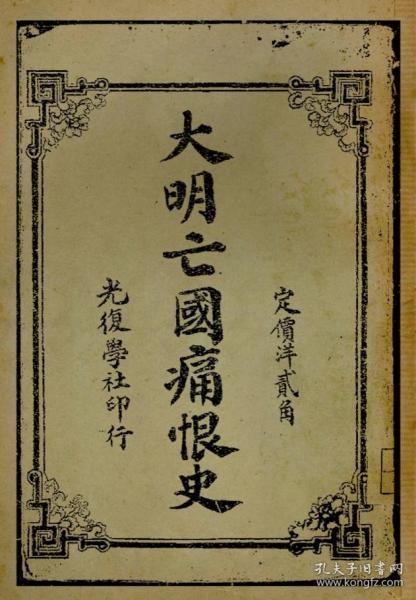 定價洋貳角
大明亡國痛恨史
光復學社印行
孔夫子旧书网
www.kongfz.com